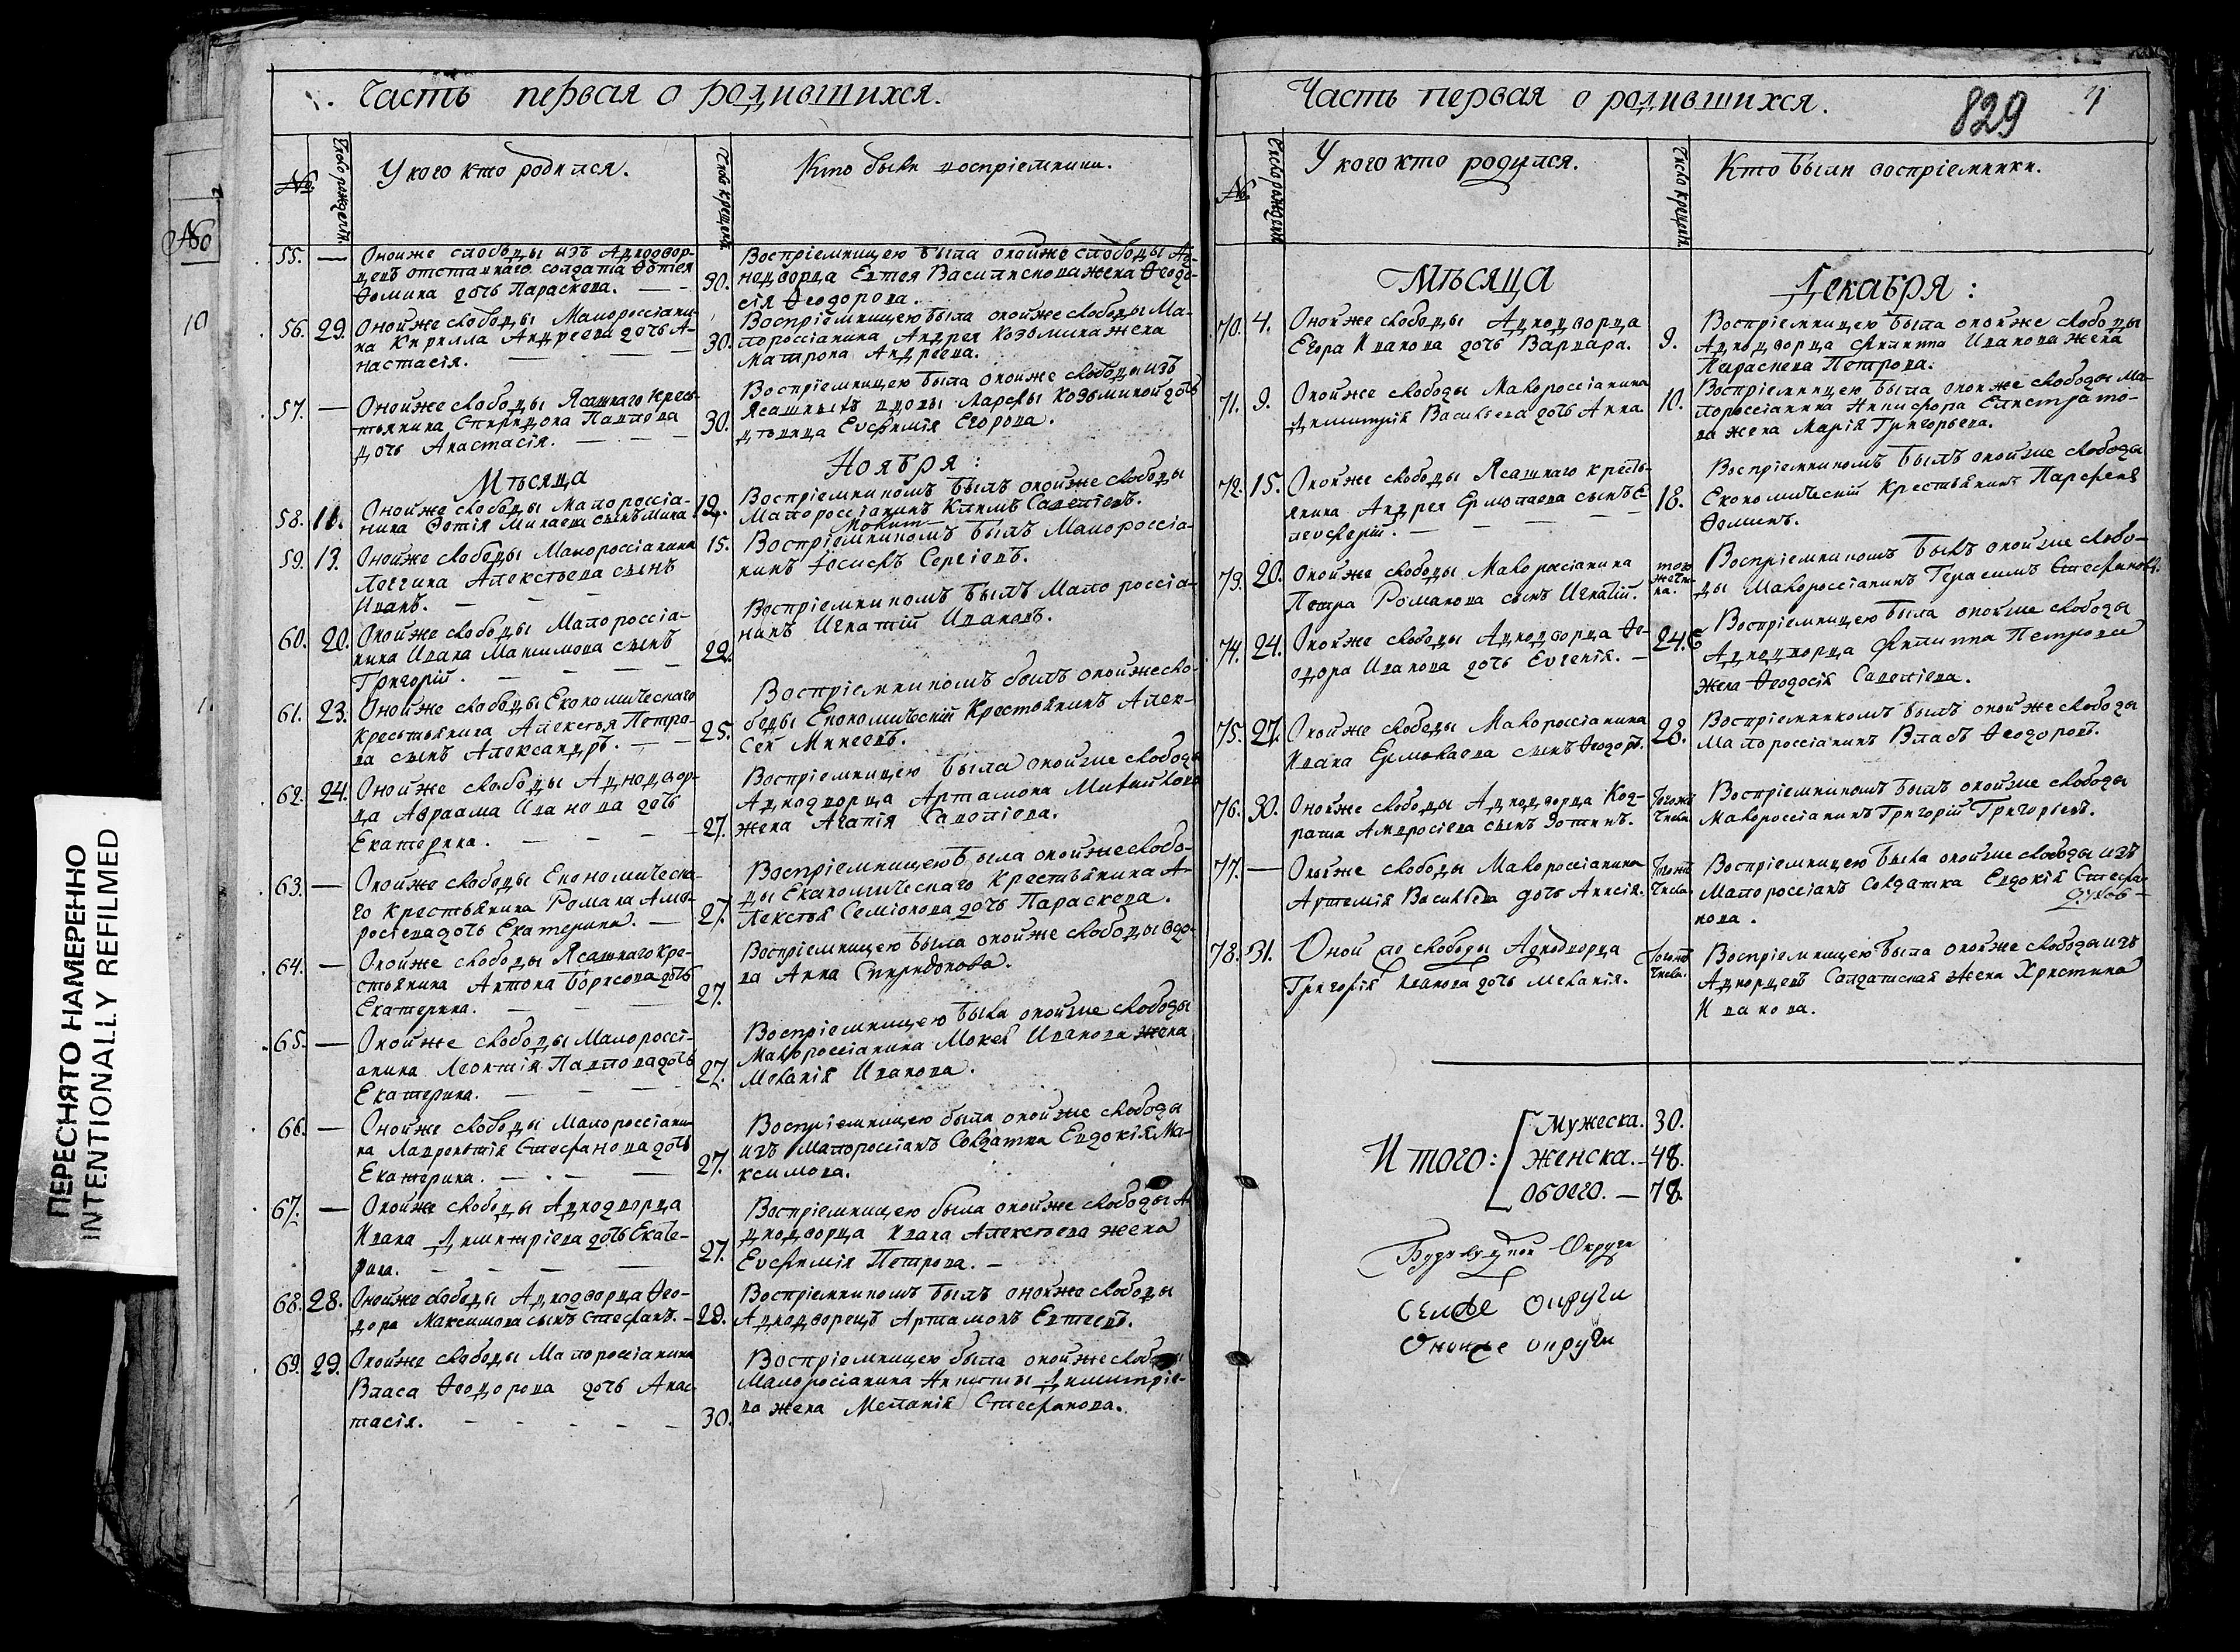 Часть первая о родившихся.
№
Число рождения.
У кого кто родился.
Число крещенія.
Кто были воспріемники.
55. — Оной же слободы изъ Аднодвор-
цевъ отставнаго солдата Фотея
Фомина дочь Параскева. — —
30. Воспріемницею была оной же слободы Ад-
нодворца Евтея Василискова жена Ѳеодо-
сія Ѳеодорова.
56. 29. Оной же слободы Малороссіяни-
на Кирилла Андреева дочь А-
настасія.
30. Воспріемницею была оной же слободы Ма-
лороссіанина Андрея Козьмина жена
Матрона Андреева.
57. — Оной же слободы Ясашнаго Кресть-
тьянина Спиридона Павлова
дочь Анастасія. — — —
30. Воспріемницею была оной же слободы изъ
Ясашныхъ вдовы Марѳы Козьминой дочь
дѣвица Евфимія Егорова.
Мѣсяца Ноября:
58. 11. Оной же слободы Малороссіа-
нина Фотія Минаева сынъ Мина.
12. Воспріемникомъ былъ оной же слободы
Малороссіанинъ Климъ Савеліевъ.
59. 13. Оной же слободы Малороссіанина
Логгина Алексѣева сынъ
Иванъ. — — —
15. Воспріемникомъ былъ Малороссіа-
нинъ Іосифъ Сергіевъ.
60. 20. Оной же слободы Малороссіа-
нина Ивана Максимова сынъ
Григорій. — — —
22. Воспріемникомъ былъ Малороссіа-
нинъ Игнатій Ивановъ.
61. 23. Оной же слободы Економическаго
Крестьянина Алексѣя Петро-
ва сынъ Александръ. — —
25. Воспріемникомъ былъ оной же сло-
боды Економическій Крестьянинъ Алек-
сей Минеевъ.
62. 24. Оной же слободы Аднодвор-
ца Авраама Иванова дочь
Екатерина. — — —
27. Воспріемницею была оной же слободы
Аднодворца Артамона Михайлова
жена Агапія Савеліева.
63. — Оной же слободы Економическа-
го крестьянина Романа Амв-
росіева дочь Екатерина. —
27. Воспріемницею была оной же слобо-
ды Економическаго Крестьянина А-
лексѣя Семіонова дочь Параскева.
64. — Оной же слободы Ясашнаго Кре-
стьянина Антона Борисова дочь
Екатерина. — — —
27. Воспріемницею была оной же слободы вдо-
ва Анна Спиридонова.
65. — Оной же слободы Малоросси-
анина Леонтія Павлова дочь
Екатерина. — — —
27. Воспріемницею была оной же слободы
Малороссіанина Мокея Иванова жена
Меланія Иванова.
66. — Оной же слободы Малороссіани-
на Лаврентія Стефанова дочь
Екатерина. — — —
27. Воспріемницею была оной же слободы
изъ Малороссіанъ Солдатка Евдокія Ма-
ксимова.
67. — Оной же слободы Аднодворца
Ивана Димитріева дочь Екате-
рина. — — — —
27. Воспріемницею была оной же слободы А-
днодворца Ивана Алексѣева жена
Евфимія Петрова. —
68. 28. Оной же слободы Аднодворца Ѳео-
дора Максимова сынъ Стефанъ. —
29. Воспріемникомъ былъ оной же слободы
Аднодворецъ Артамонъ Евтеевъ.
69. 29. Оной же слободы Малороссіанина
Власа Ѳеодорова дочь Анас-
тасія. — — — — —
30. Воспріемницею была оной же слободы
Малороссіанина Никиты Димитріе-
ва жена Меланія Стефанова.
Часть первая о родившихся.
829
№
Число рожденія
У кого кто родился.
Число крещен.
Кто были воспріемники.
Мѣсяца Декабря:
70. 4. Оной же слободы Аднодворца
Егора Иванова дочь Варвара.
9. Воспріемницею была оной же слободы
Аднодворца Филиппа Иванова жена
Параскева Петрова.
71. 9. Оной же слободы Малороссіанина
Димитрія Васильева дочь Анна.
10. Воспріемницею была оной же слободы Ма-
лороссіанина Никифора Елистрато-
ва жена Марія Григорьева.
72. 15. Оной же слободы Ясашнаго кресть-
янина Андрея Ермолаева сынъ Е-
леуферій. — — — —
18. Воспріемникомъ былъ оной же слободы
Економическій Крестьянинъ Парфенъ
Фоминъ.
73. 20. Оной же слободы Малоросіанина
Петра Романова сынъ Игнатій.
того же чи-
сла. Воспріемникомъ былъ оной же слобо-
ды Малороссіанинъ Герасимъ Стефановъ.
74. 24. Оной же слободы Аднодворца Ѳе-
одора Иванова дочь Евгенія. —
24. Воспріемницею была оной же слободы
Аднодворца Филиппа Петрова
жена Ѳеодосія Савеліева.
75. 27. Оной же слободы Малороссіанина
Ивана Ермолаева сынъ Ѳеодоръ.
28. Воспріемникомъ былъ оной же слободы
Малороссіанинъ Власъ Ѳеодоровъ.
76. 30. Оной же слободы Аднодворца Код-
рата Амвросіева сынъ Зотикъ.
Тогожъ
Числа. Воспріемникомъ былъ оной же слободы
Малороссіанинъ Григорій Григорьевъ.
77. — Оной же слободы Малороссіанина
Артемія Васильева дочь Анисія.
Тогожъ
Числа. Воспріемницею была оной же слободы изъ
Малороссіанъ Солдатка Евдокія Стефа-
нова.
78. 31. Оной же слободы Аднодворца
Григорія Иванова дочь Меланія.
Тогожъ
Числа. Воспріемницею была оной же слободы изъ
Аднорцевъ Салдатская Жена Христина
Иванова.
Итого: Мужеска. 30.
Женска. — 48.
Обоего. — 78.
Округи
округи
округи
ПЕРЕСНЯТО НАМЕРЕННО
INTENTIONALLY REFILMED
№
10